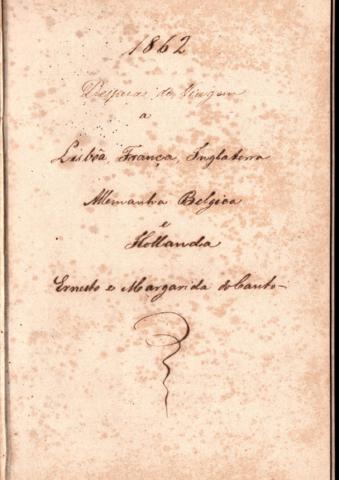 1862
Despezas da Viagem
a
Lisbôa, França, Inglaterra
Allemanha Belgica
e
Hollanda
Ernesto e Margarida do Canto